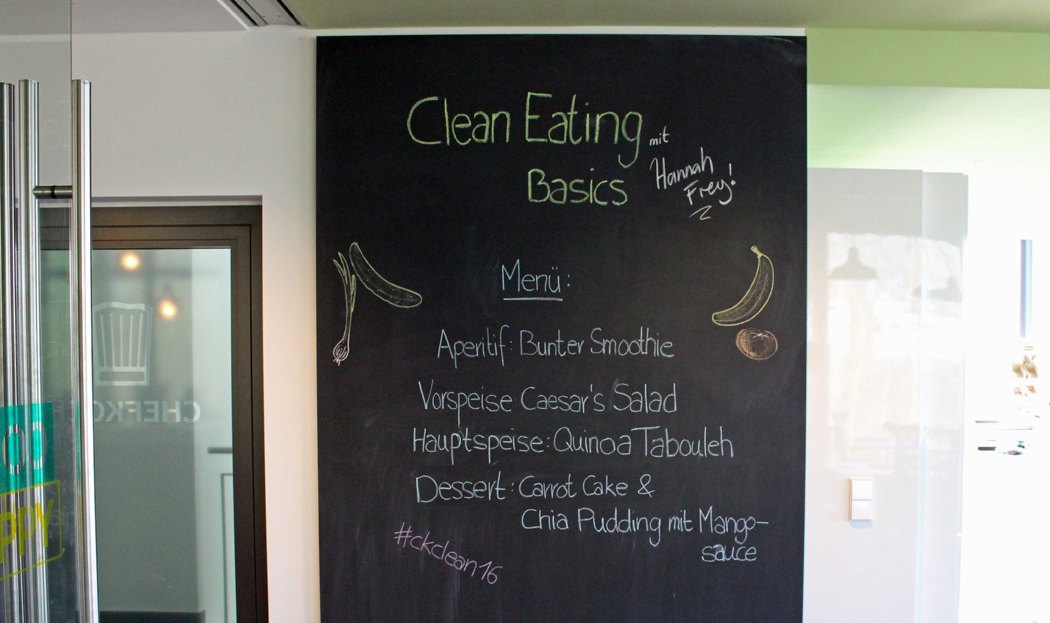 Clean Eating
Basics
mit
Hannah
Frey!
Menü:
Aperitif: Bunter Smoothie
Vorspeise Caesar's Salad
Hauptspeise: Quinoa Tabouleh
Dessert: Carrot Cake &
Chia Pudding mit Mango-
sauce
#ckclean16
CHEFKO